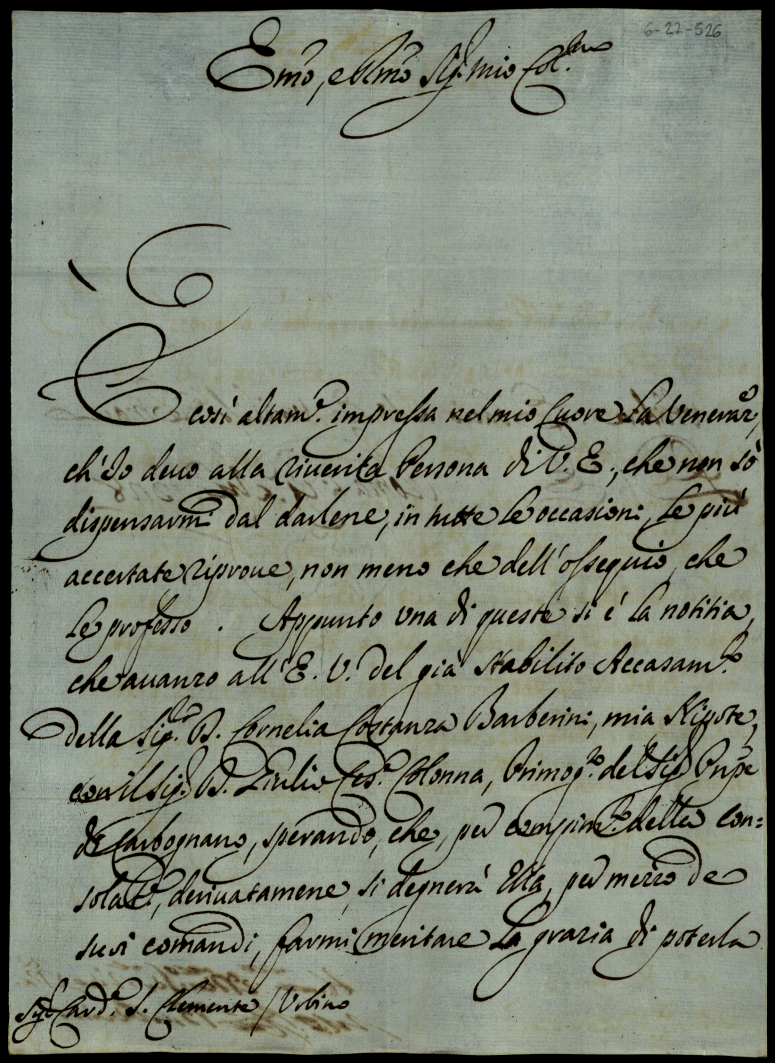 6-27-526
Emo, e Rmo Sig.r mio Col.mo
È
E così altam.e impressa nel mio Cuore la Veneraz.e,
ch'Io devo alla riverita Persona di V. E., che non sò
dispensarmi dal darlene, in tutte le occasioni, le più
accertate riprove, non meno che dell'ossequio, che
le professo. Appunto una di queste si è la notitia,
che avanzo all'E. V. del già stabilito Accasam.to
della Sig.ra D. Cornelia Costanza Barberini, mia Nipote,
con il Sig.r D. Giulio Ces.e Colonna, Primog.to del Sig.r Pnpe
di Carbognano, sperando, che, per compim.to della con=
solat.e, derivatamene, si degnerà Ella, per mezzo de
suoi comandi, farmi meritare la grazia di poterla
Sig.r Card. S. Clemente / Urbino